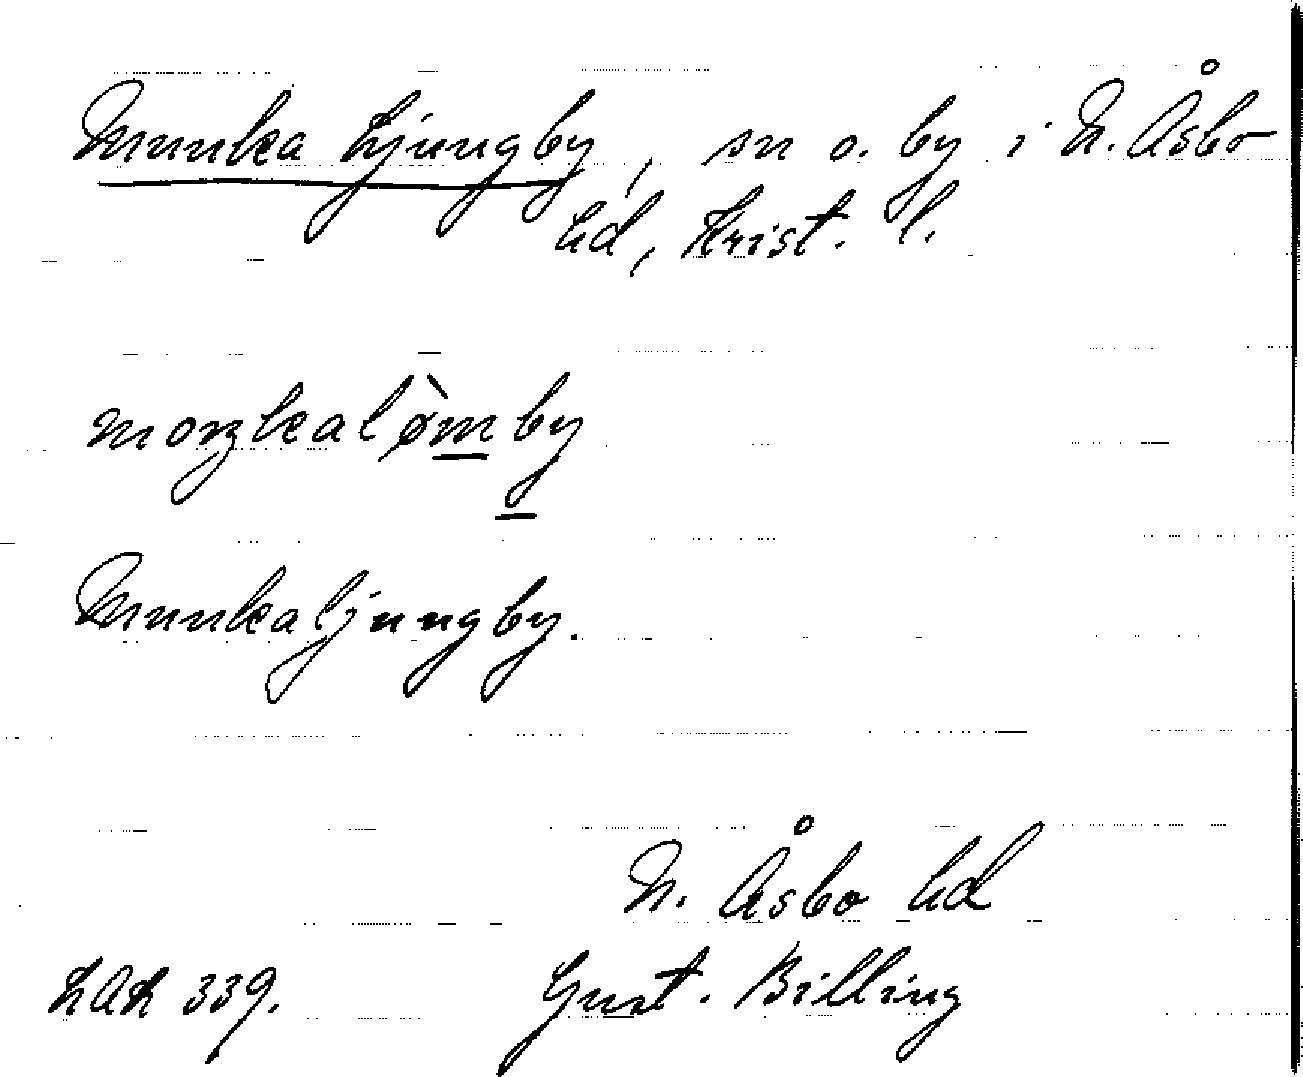 Munka Ljungby, sn o. by i N. Åsbo
hd, Krist. l.
moŋkalø̀mby
Munkaljungby.
N. Åsbo hd
LAL 339. Gust. Billing